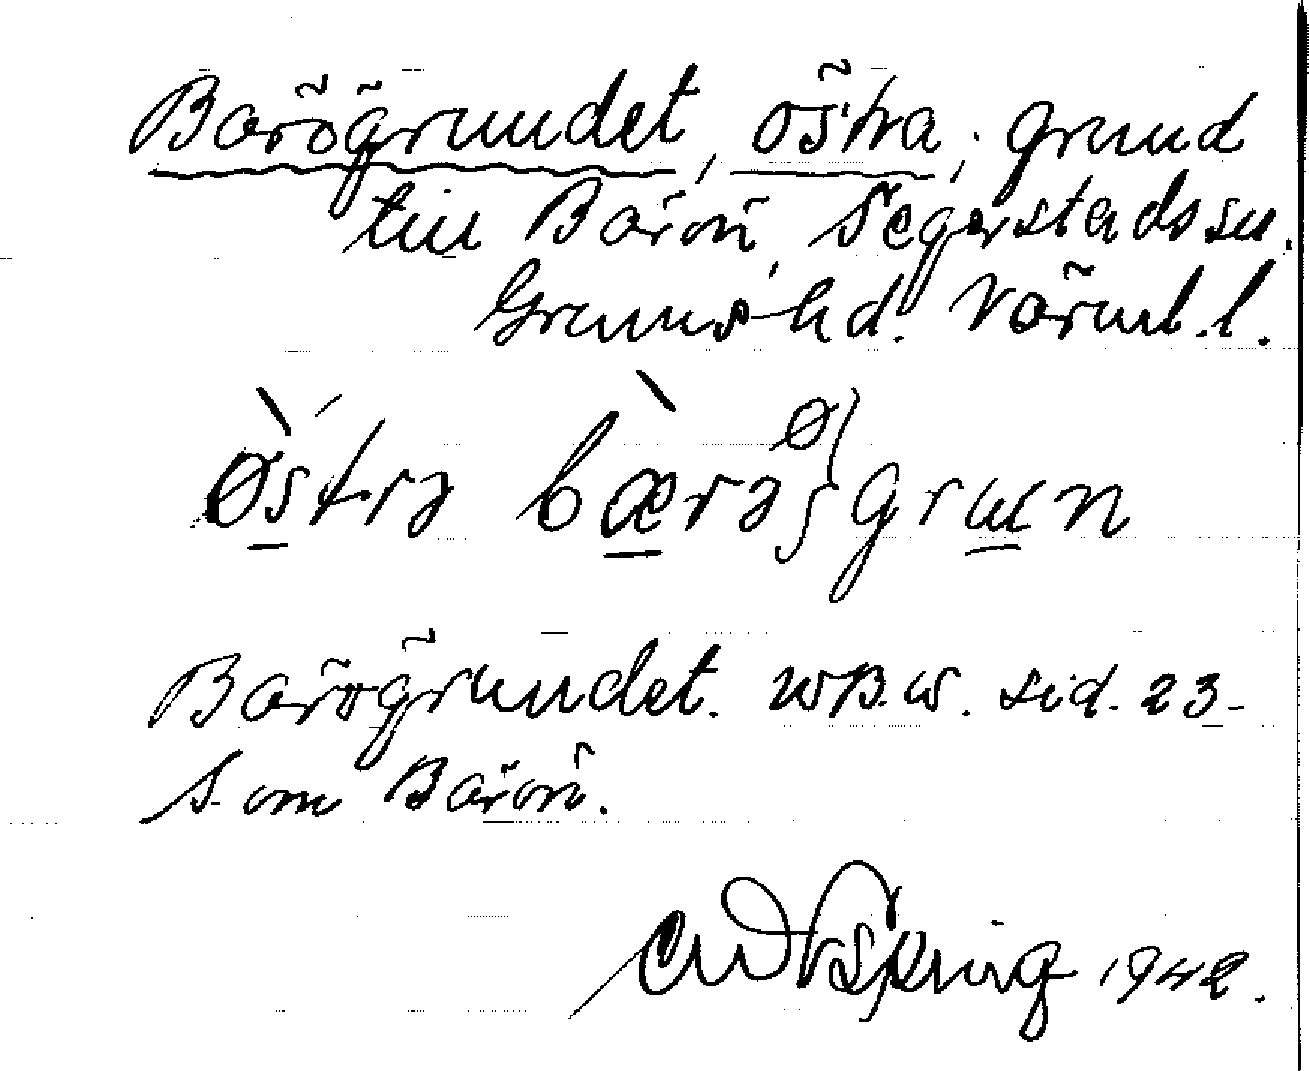 Barögrundet, östra, grund
till Barön, Segerstads sn.
Grums hd. Värml. l.
østrə bærəø grun
Barögrundet. WBW. sid. 23-
S. om Barön.
1942.